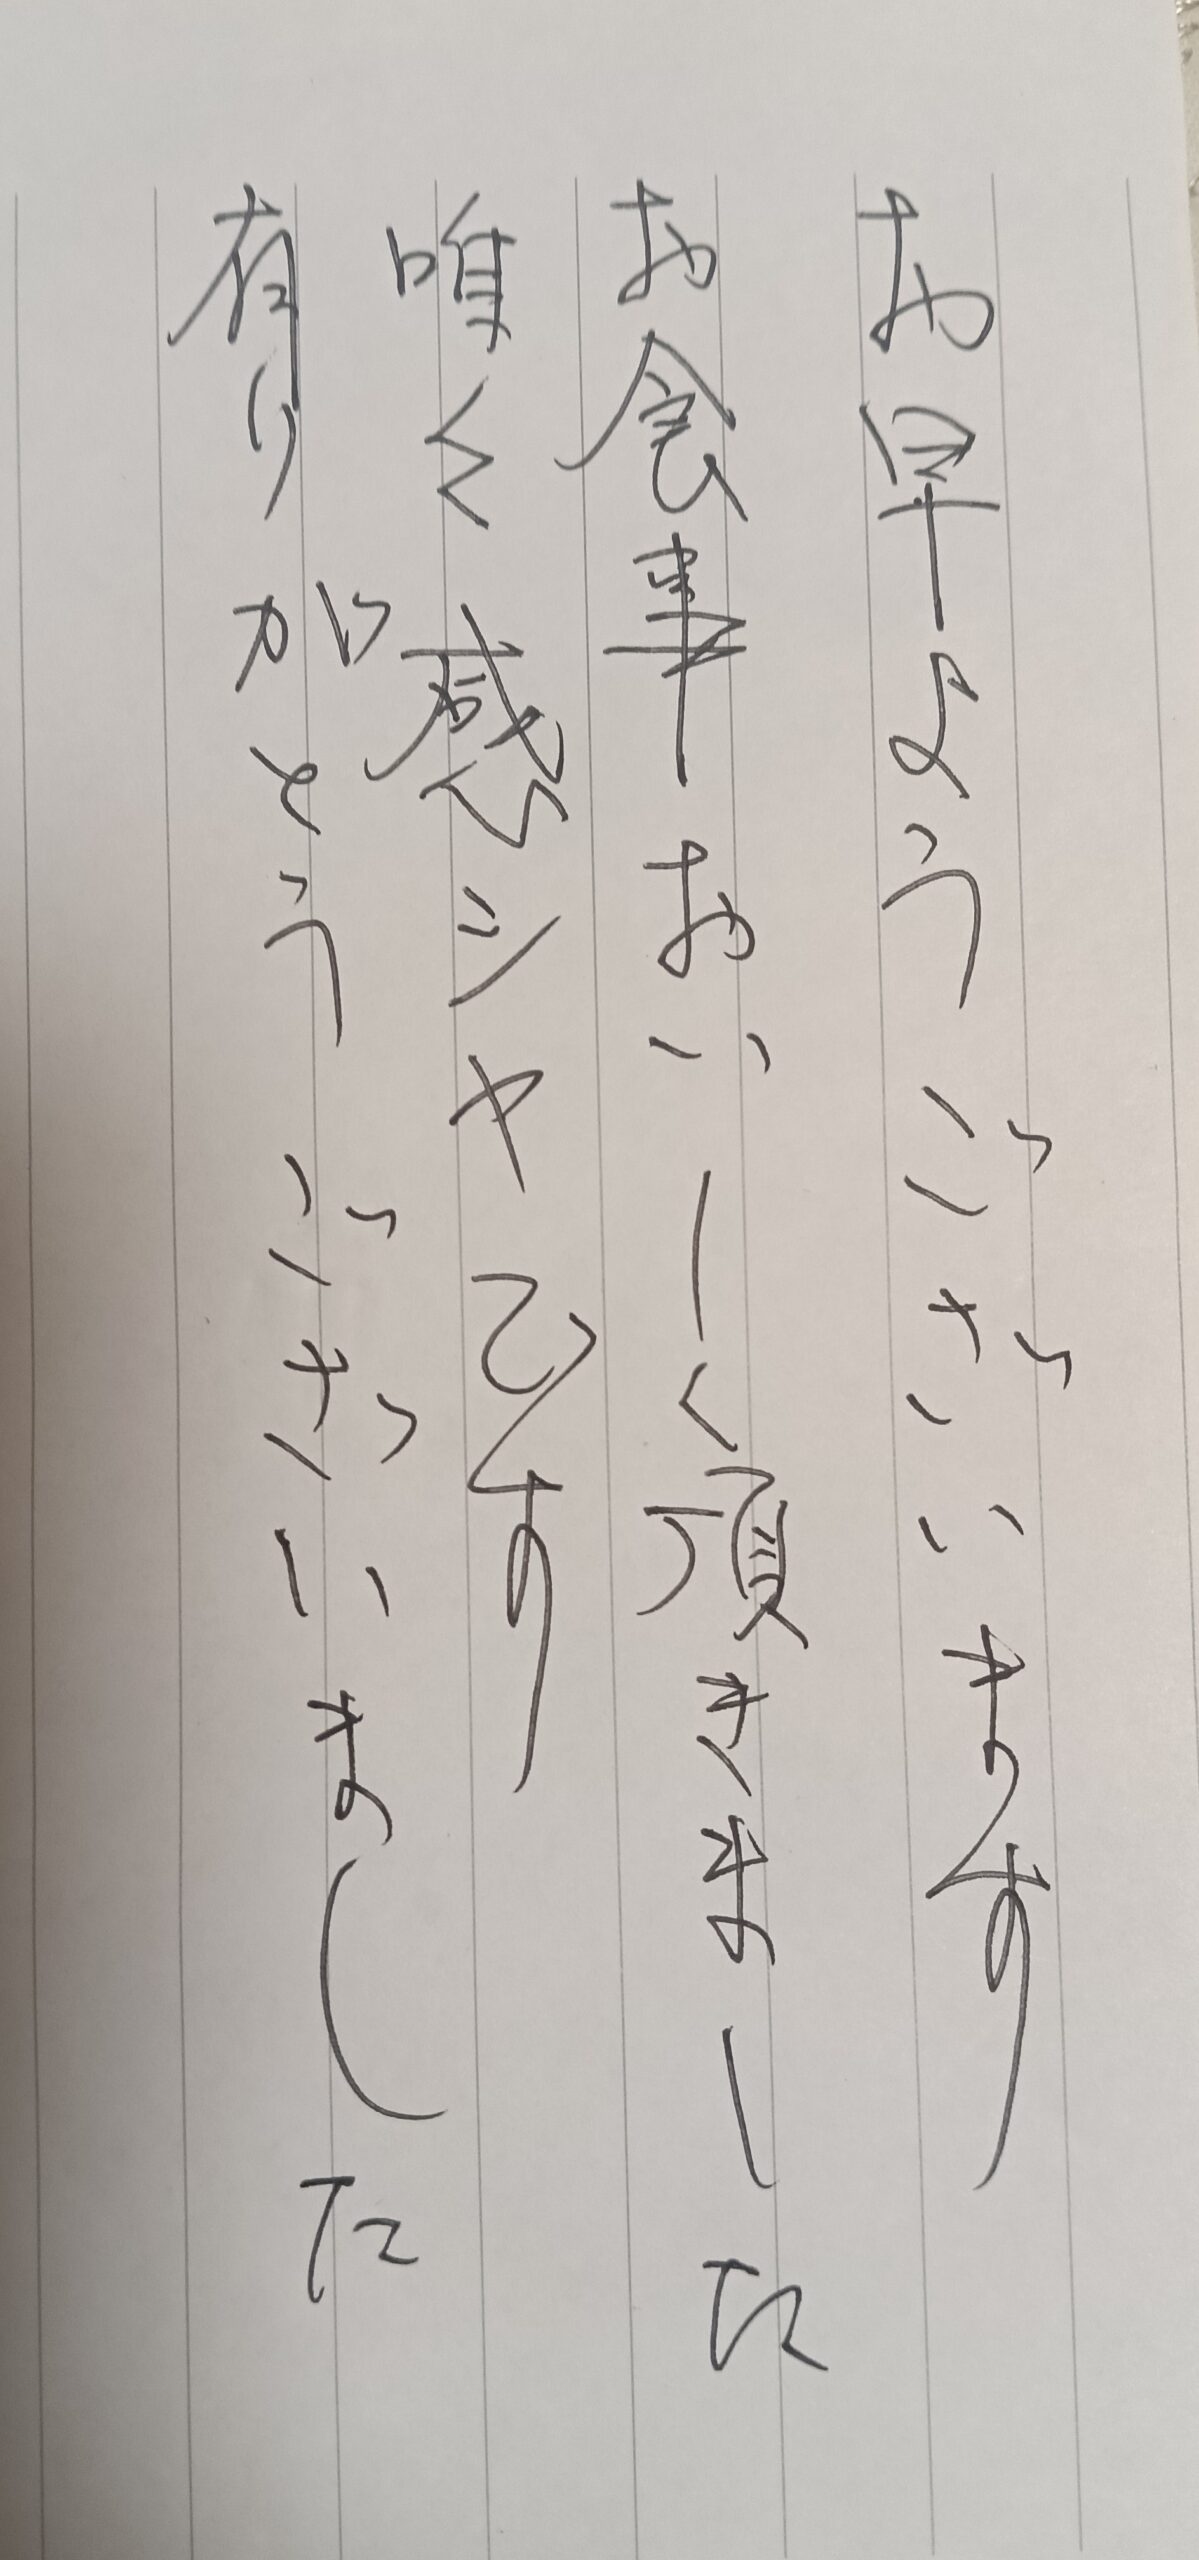 お早ようございます
お食事おいしく頂きました
唯々感シャです
有りがとうございました